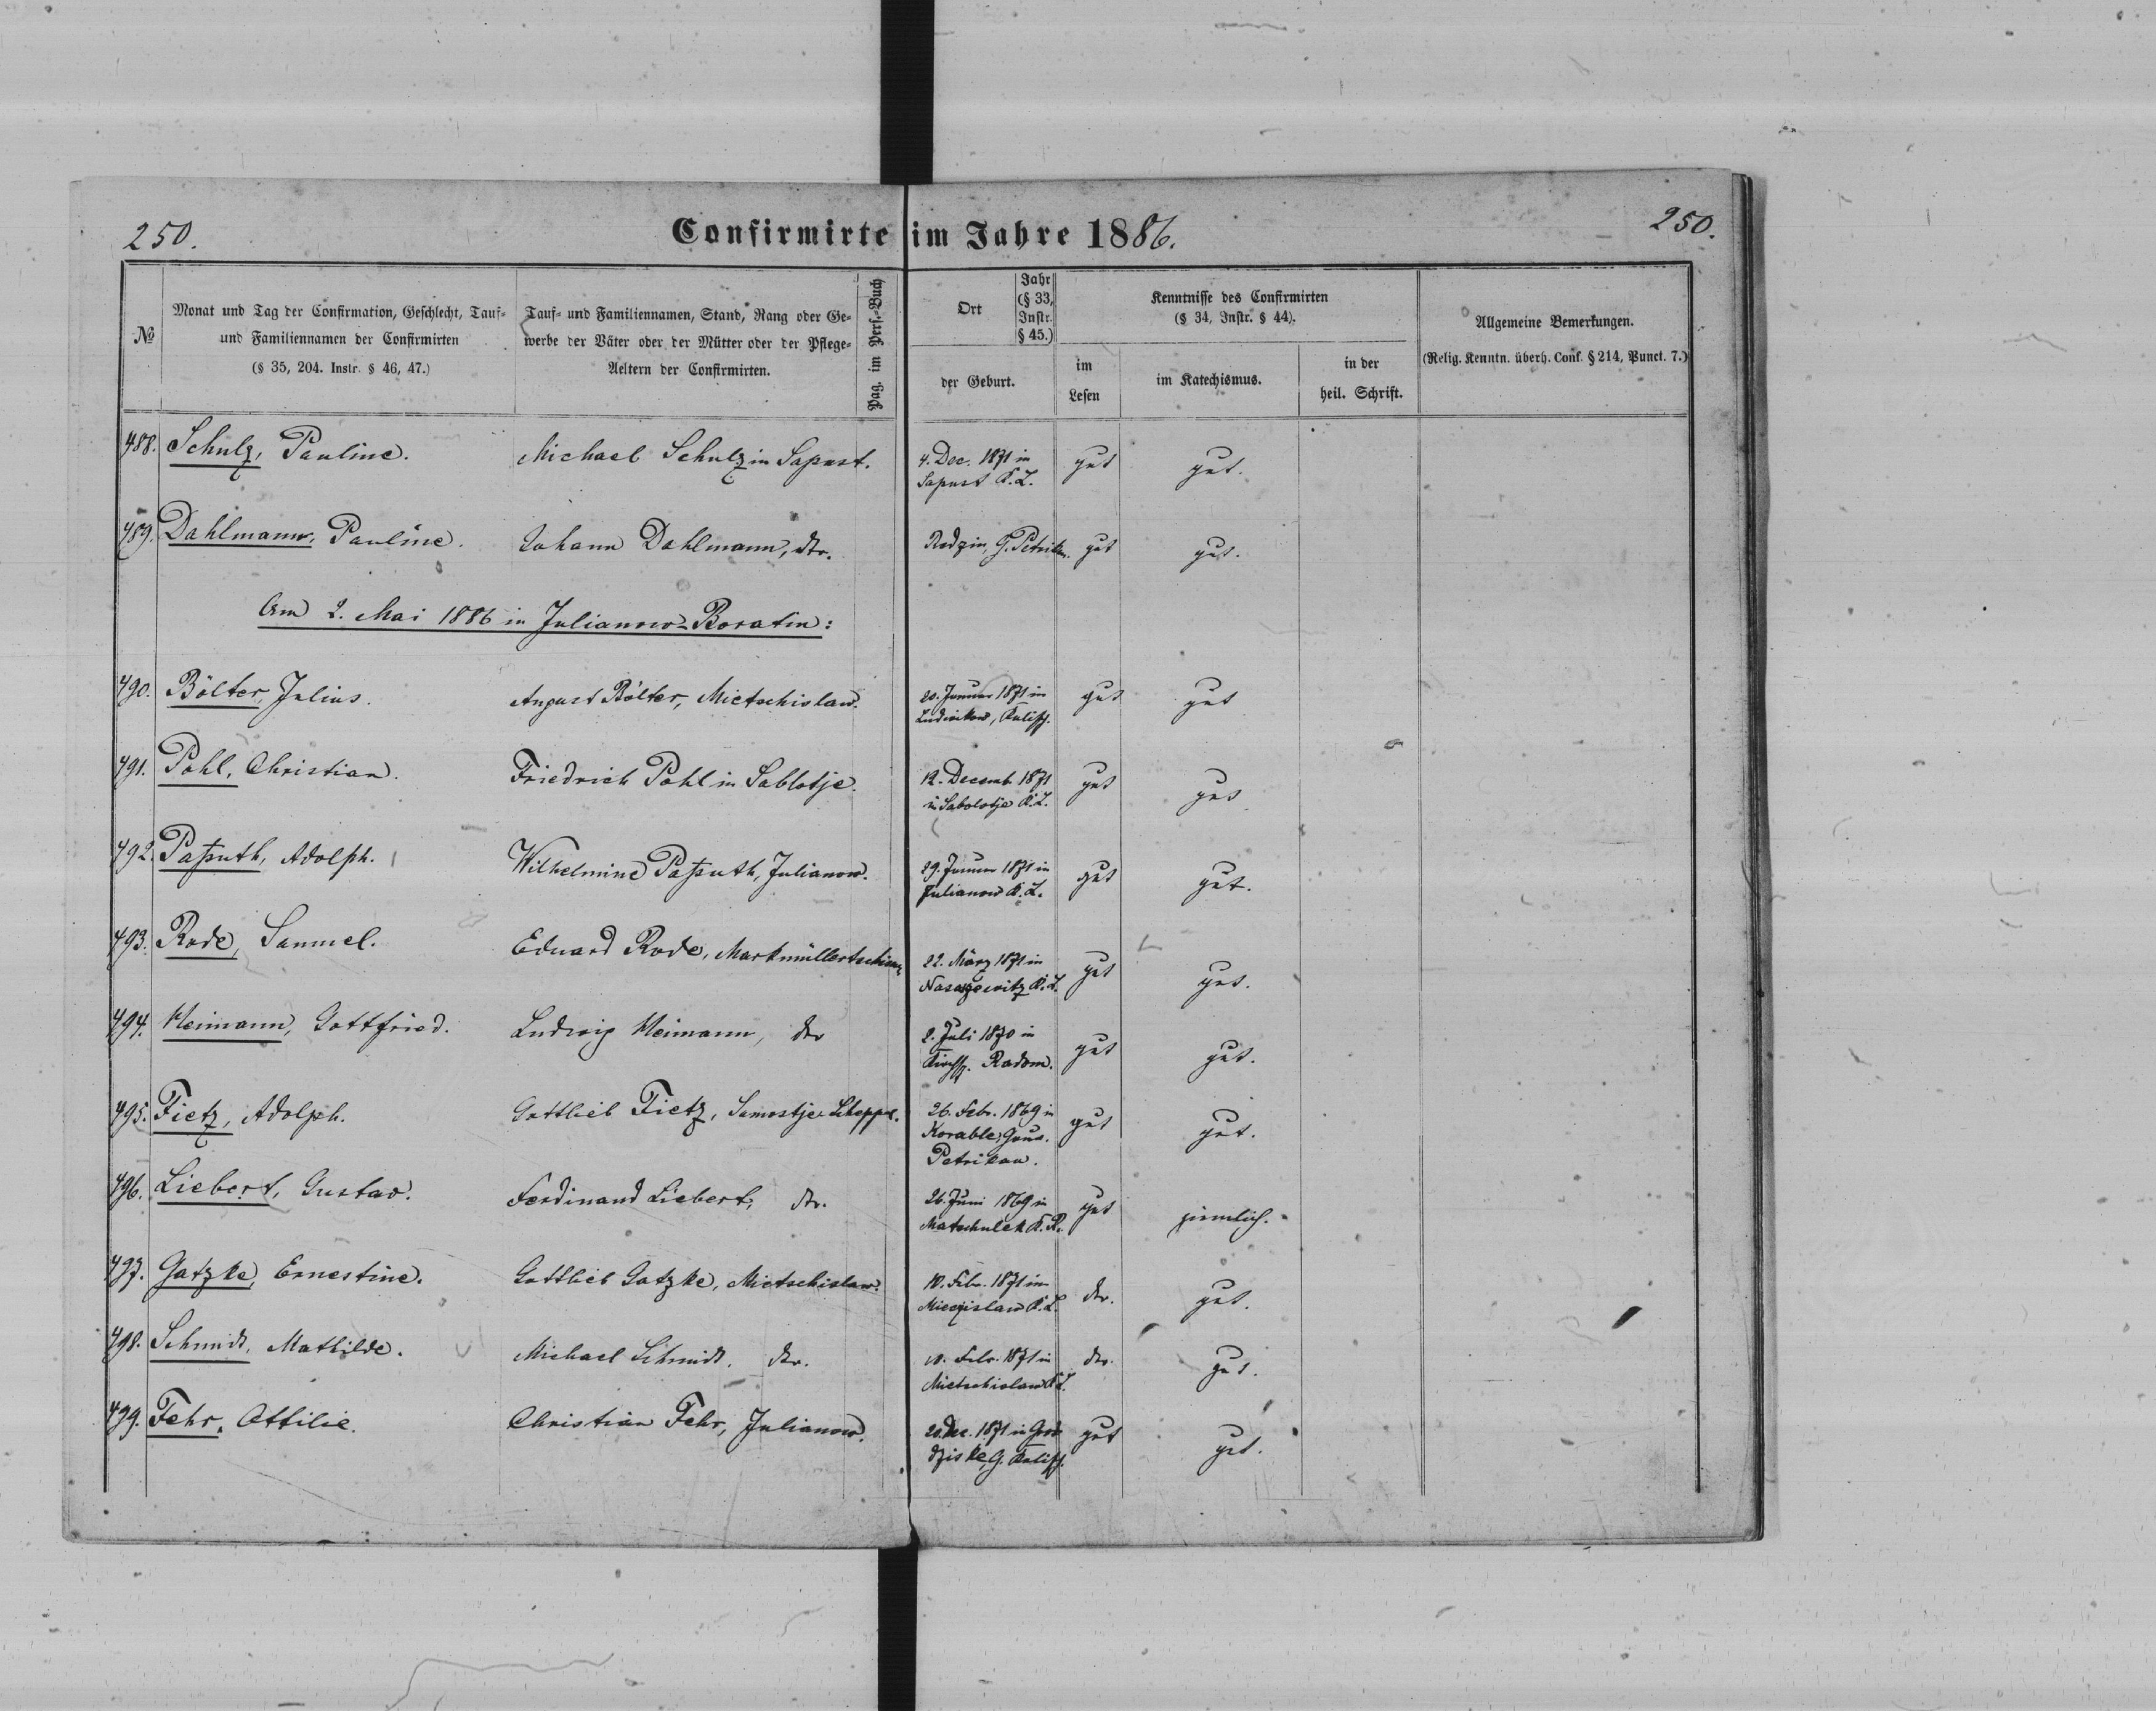 250.
Confirmirte im Jahre 1886.
250.
№
Monat und Tag der Confirmation, Geschlecht, Tauf-
und Familiennamen der Confirmirten
(§ 35, 204. Instr. § 46, 47.)
Tauf- und Familiennamen, Stand, Rang oder Ge-
werbe der Väter oder der Mütter oder der Pflege-
Aeltern der Confirmirten.
Pag. im Pers.-Buch
Ort
Jahr
(§ 33,
Instr.
§ 45.)
der Geburt.
Kenntnisse des Confirmirten
(§ 34, Instr. § 44).
im
Lesen
im Katechismus.
in der
heil. Schrift.
Allgemeine Bemerkungen.
(Relig. Kenntn. überh. Conf. § 214, Punct. 7.)
488. Schulz, Pauline. Michael Schulz in Sapust. 4. Dec. 1871 in gut gut.
Sapust K. L.
489. Dahlmann, Pauline. Johann Dahlmann, dto. G. Petrikau. gut gut.
Am 2. Mai 1886 in Julianow-Boratin:
490. Bölter, Julius. August Bölter, Mietschislaw. 20. Januar 1871 in gut gut
Ludwikow, Kalisch.
491. Pohl, Christian. Friedrich Pohl in Sablotje. 12. Decemb. 1871 gut gut
in Sabolotje K. L.
492. Paßuth, Adolph. Wilhelmine Paßuth, Julianow. 29. Januar 1871 in gut gut.
Julianow K. L.
493. Rode, Samuel. Eduard Rode, 22. März 1871 in gut gut.
K. L.
494. Heimann, Gottfried. Ludwig Heimann, dto 2. Juli 1870 in gut gut.
Kirchsp. Radom.
495. Fietz, Adolph. Gottlieb Fietz, Samostje 26. Febr. 1869 in gut gut.
Korable, Gouv.
Petrikau.
496. Liebert, Gustav. Ferdinand Liebert, dto. 26. Juni 1869 in gut ziemlich.
Matschulek K. R.
497. Gatzke, Ernestine. Gottlieb Gatzke, Mietschislaw. 10. Febr. 1871 in dto. gut.
Mieczislaw K. L.
498. Schmidt, Mathilde. Michael Schmidt. dto. 10. Febr. 1871 in dto. gut.
Mietschislaw K. L.
499. Fehr, Ottilie. Christian Fehr, Julianow. 20. Dec. 1871 in Grod- gut gut.
dziske, G. Kalisch.